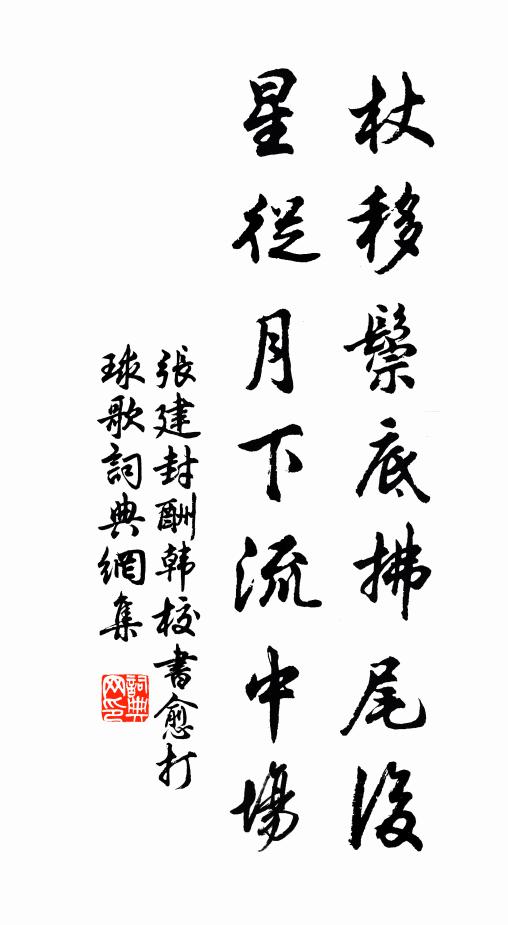 杖移鬃底拂尾後
星從月下流中場
張建封酬韩校書愈打
球歌詞典網集
詞典
网印